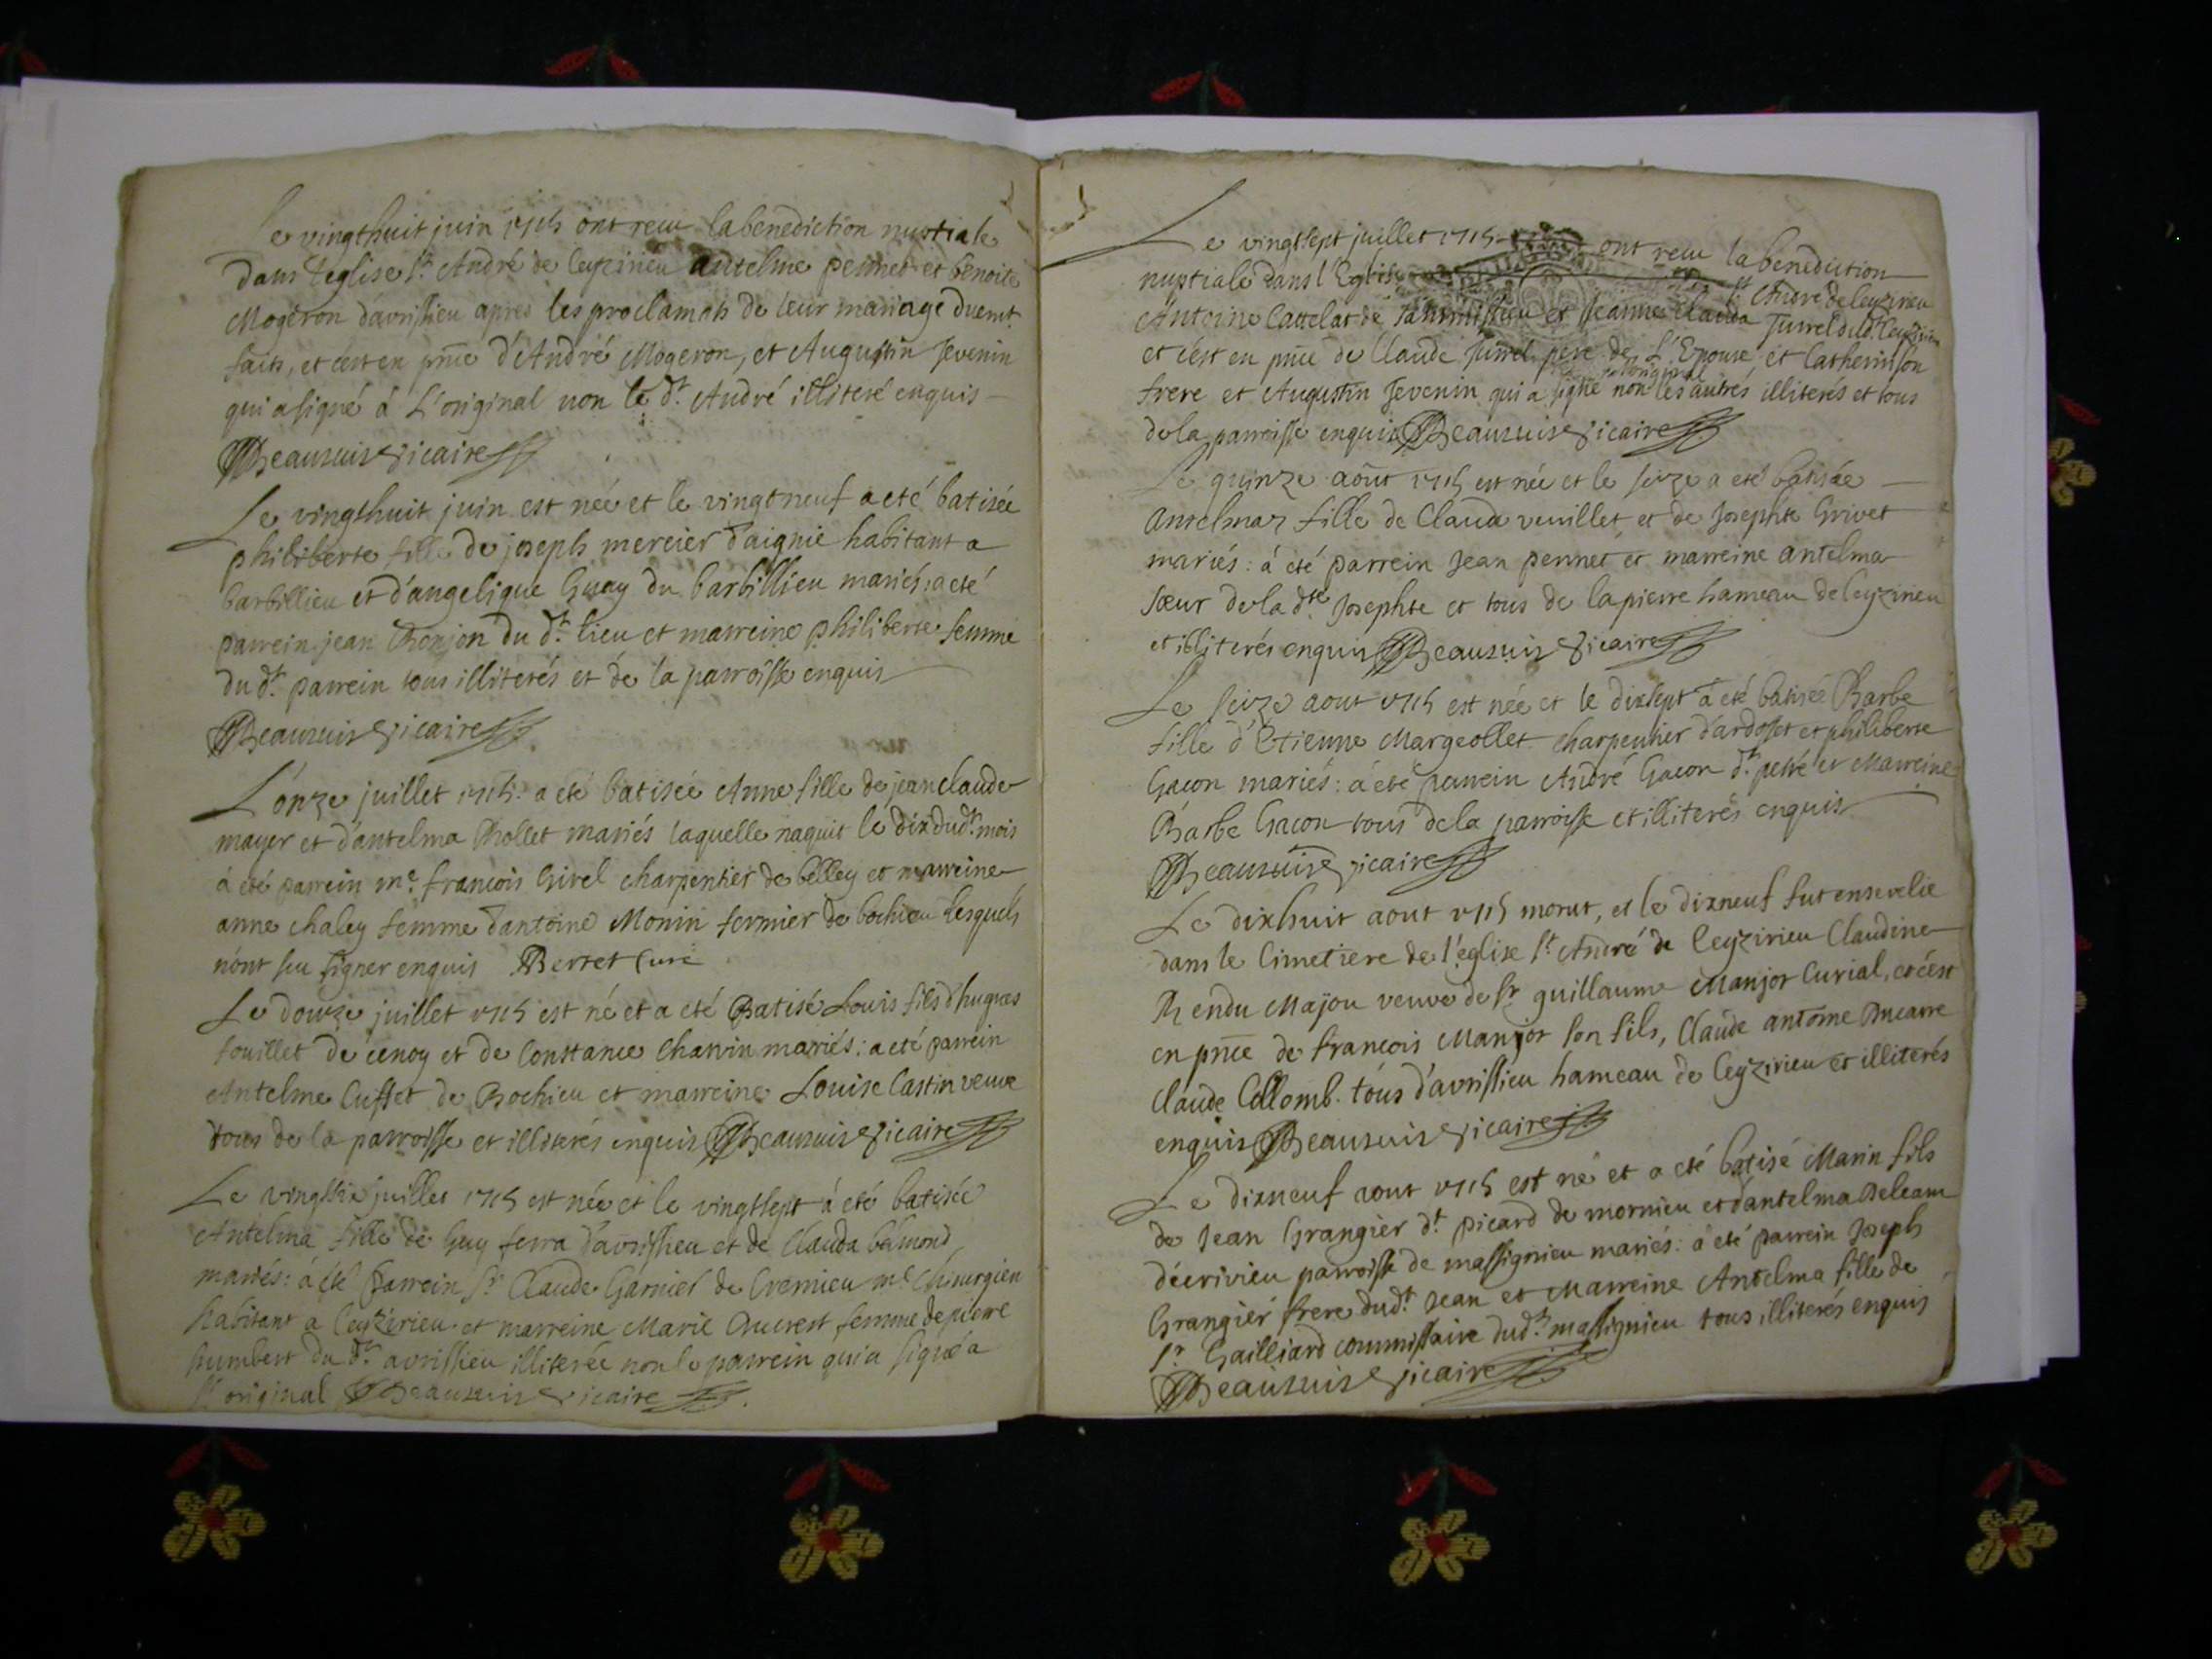 Le vingthuit juin 1715 ont receu la benediction nuptiale
dans l'eglise st André de ceyzirieu antelme pennet et benoite
Mogeron d'avrissieu apres les proclamaōs de leur mariage duemt
faits, et c'est en pn̄ce d'André Mogeron, et Augustin Jevenin
qui a signé à L'original non le dt. André illiteré enquis
Beausuis vicaire
Le vingthuit juin est née et le vingtneuf a eté batisée
philiberte fille de joseph mercier d'aignie habitant a
barbillieu et d'angelique Guay du barbillieu mariés: a eté
parrein jean Thonjon du dt. lieu et marreine philiberte femme
du dt. parrein tous illiterés et de la parroisse enquis
Beausuis vicaire
L'onze juillet 1715. a eté batisée Anne fille de jean claude
mayer et d'antelma Thollet mariés laquelle naquit le dix dudt. mois
à eté parrein me. francois Girel charpentier de belley et marreine
anne chaley femme d'antoine Monin fermier de bochieu lesquels
n'ont sçu signer enquis Berret Curé
Le douze juillet 1715 est né et a eté Batisé Louis fils d'hugues
touillet de cenoy et de Constance Charvin mariés: a eté parrein
Antelme Cusset de Bochieu et marreine Louise Castin veuve
tous de la parroisse et illiterés enquis Beausuis vicaire
Le vingtsix juillet 1715 est née et le vingtsept à eté batisée
Antelma fille de Guy ferra d'avrissieu et de Clauda bemond
mariés: à eté parrein sr Claude Garnier de Cremieu me chirurgien
habitant a Ceyzirieu et marreine Marie Ducrest femme de pierre
humbert du dt. avrissieu illiterée non le parrein qui a signé a
l'original Beausuis vicaire
Le vingtsept juillet 1715 ont receu la benediction
nuptiale dans l'Eglise st André de ceyzirieu
Antoine Cattelat de et Jeanne Clauda Jurrel dudt. Ceyzirieu
et c'est en pn̄ce de Claude Jurrel pere de L'Epouse et Catherin son
frere et Augustin Jevenin qui a signé à l'original non les autres illiterés et tous
de la parroisse enquis Beausuis vicaire
Le quinze aoūt 1715 est née et le seize a eté batisée
Antelma fille de Claude venillet et de Josephte Grivet
mariés: à eté parrein Jean pennet et marreine antelma
sœur de la dte Josephte et tous de lapierre hameau de Ceyzirieu
et illiterés enquis Beausuis vicaire
Le seize aout 1715 est née et le dixsept à eté batisée Barbe
fille d'Etienne Margeollet charpentier d'ardosset et philiberte
Gacon mariés: à eté parrein André Gacon dt. petré et Marreine
Barbe Gacon tous de la parroisse et illiterés enquis
Beausuis vicaire
Le dixhuit aout 1715 morut, et le dixneuf fut ensevelie
dans le Cimetiere de l'eglise st André de Ceyzirieu Claudine
Rendu Majou veuve de sr guillaume Manjot Curial, et c'est
en pn̄ce de francois Manjot son fils, Claude antoine Ducarre
Claude Collomb. tous d'avrissieu hameau de Ceyzirieu et illiterés
enquis Beausuis vicaire
Le dixneuf aout 1715 est né et a eté batisé Marin fils
de Jean Grangier dt. picard de mornieu et d'antelma Beleam
d'ecrivieu parroisse de massignieu mariés: à eté parrein Joseph
Grangier frere dudt. Jean et Marreine Antelma fille de
sr. Gailliard commissaire dudt. massignieu tous illiterés enquis
Beausuis vicaire